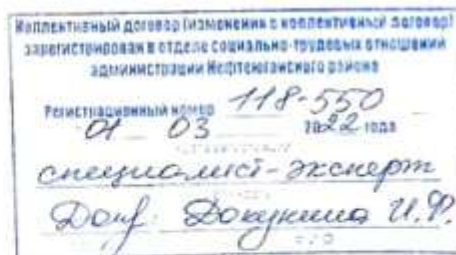 Коллективный договор (изменения в коллективный договор)
зарегистрирован в отделе социально-трудовых отношений
администрации Нефтеюганского района
Регистрационный номер 118-550
01 03 2022 года
специалист-эксперт
Докукина И.Ф.